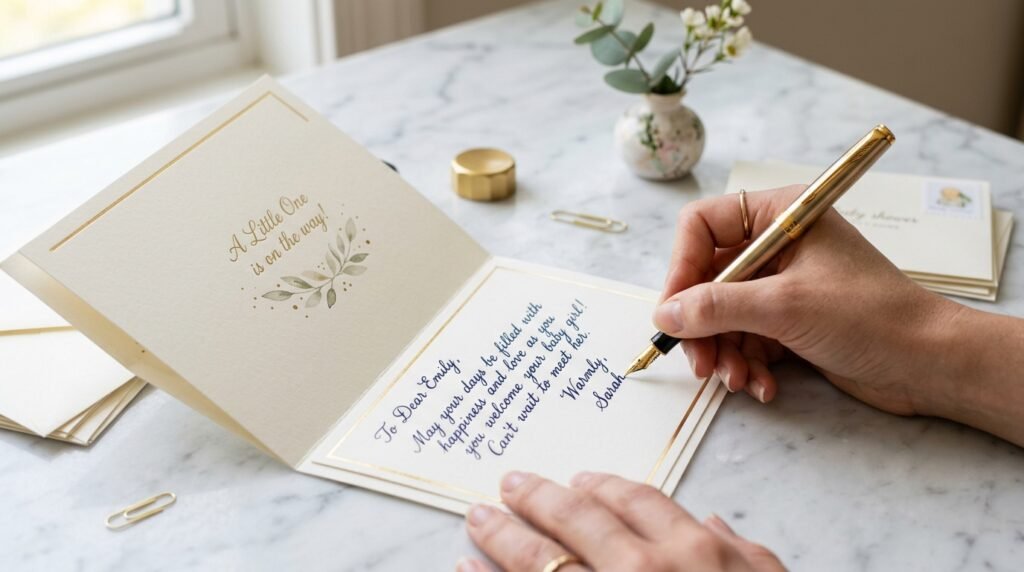 A Little One
is on the way!
To Dear Emily,
May your days be filled with
happiness and love as you
you welcome your baby girl!
Can't wait to meet her.
Warmly,
Sarah
shower